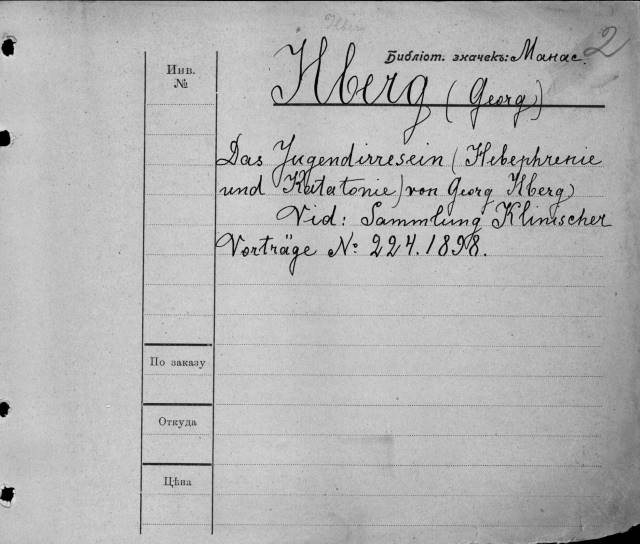 Инв. №
Библіот. значекъ: Манас. 2
Hberg (Georg)
Das Jugendirresein (Hebephrenie
und Katatonie) von Georg Hberg)
Vid: Sammlung Klinischer
Vorträge №: 224. 1898.
По заказу
Откуда
Цѣна